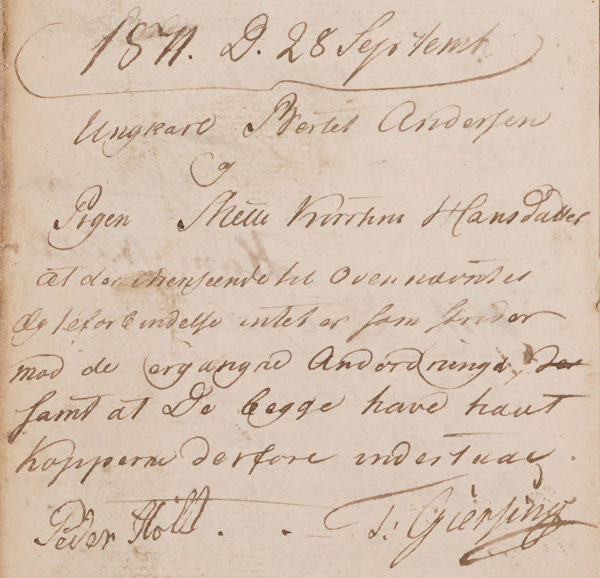 1811. D. 28 Septembr
Ungkarl Bertel Andersen
og
Pigen Mette Kirstine Hansdatter
at der ihenseende til Ovennævntes
Ægteforbindelse intet er som strider
mod de ergangne Anordninger, der
samt at De begge have havt
Kopperne derfore indestaaer
Peder Holt. . . Giersing